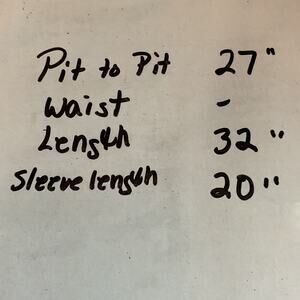 Pit to Pit 27"
Waist -
Length 32"
Sleeve length 20"